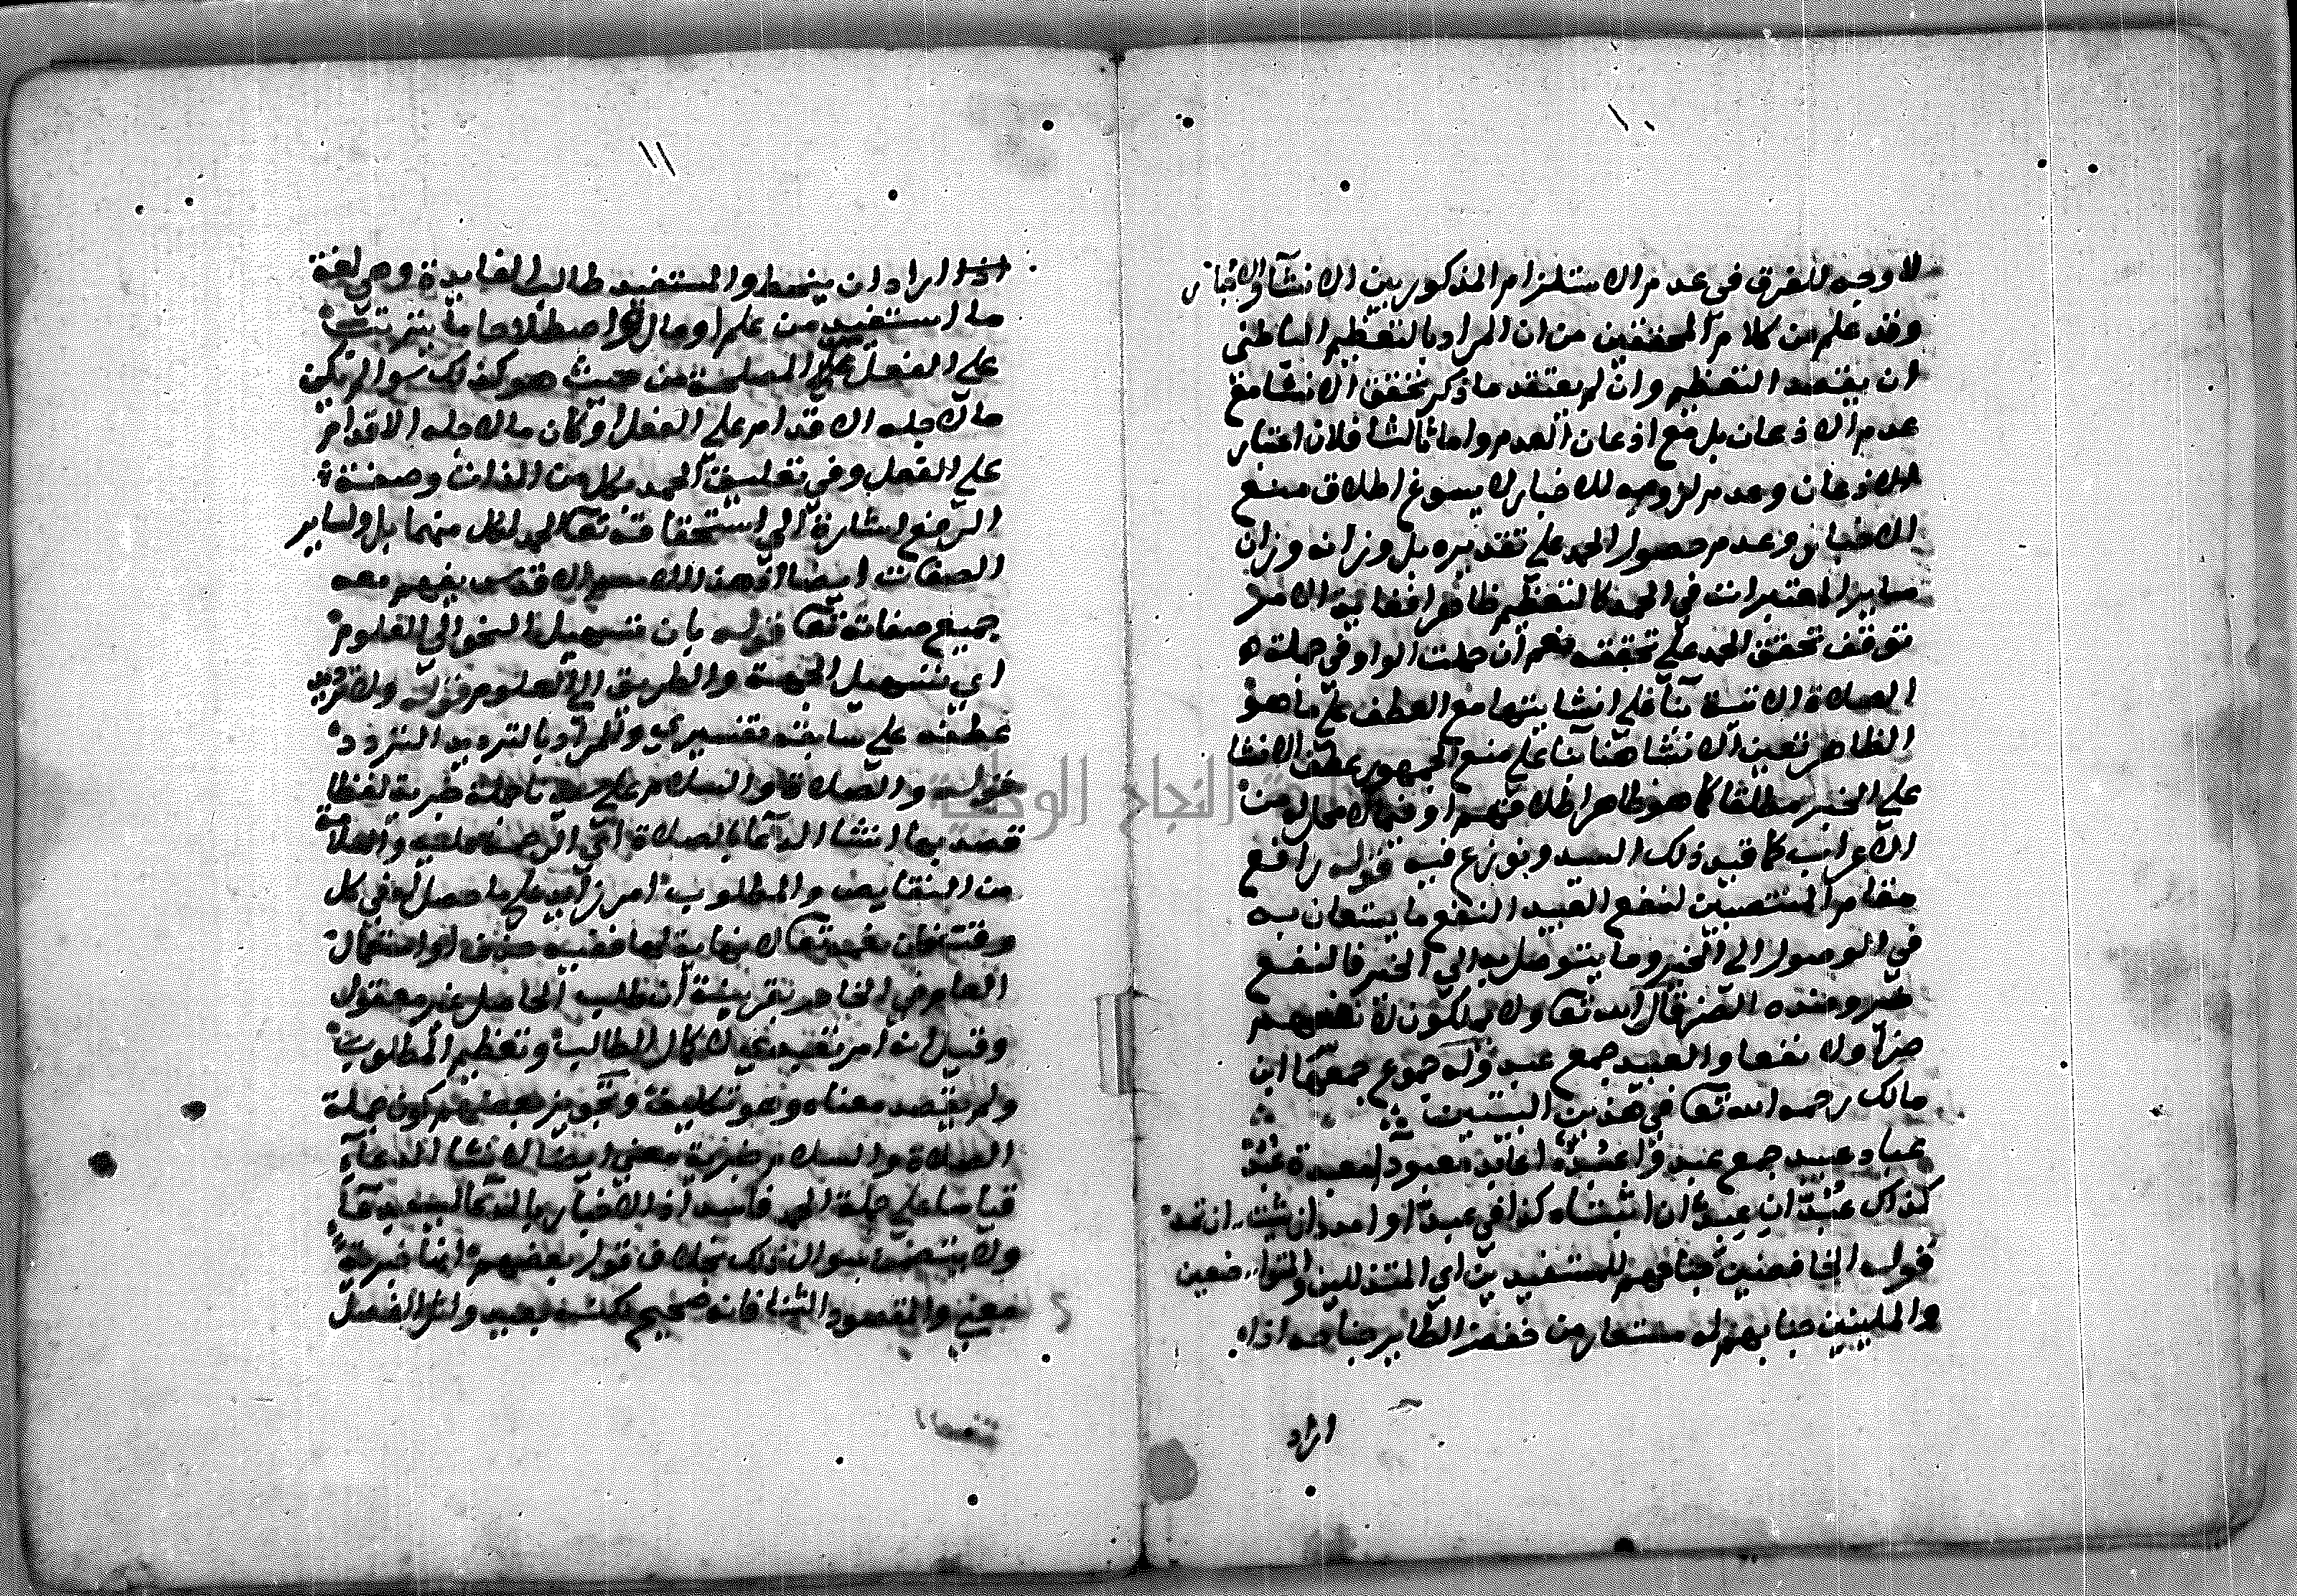 ١٠
لا وجه للفرق في عدم الاستلزام المذكور بين الانشاء والاخبار
وقد علم من كلام المحققين من ان المراد بالتعظيم الباطني
ان يقصد التعظيم وان لم يعتقد ما ذكر تحقق الانشا مع
عدم الاذعان بل مع اذعان العدم واما ثالثا فلان اعتبار
الاذعان وعدم لزومه للاخبار لا يسوغ اطلاق منع
الاخبار وعدم حصول الحمد على تقديره بل وزانه وزان
ساير المعتبرات في الحمد كالتعظيم ظاهرا فغاية الامر
توقف تحقق الحمد على تحققه نعم ان جعلت الواو في جملة
الصلاة الاتية بنا على انشايتها مع العطف على ما هو
الظاهر تعين الانشا هنا بنا على منع الجمهور عطف الانشا
على الخبر مطلقا كما هو ظاهر اطلاقهم او فيما لا محل له من
الاعراب كما قيد ذلك السيد ونوزع فيه قوله رافع
مقام المنتصبين لنفع العبيد النفع ما يستعان به
في الوصول الى الخير وما يتوصل به الى الخير فالنفع
خير وضده الضر قال الله تعا ولا يملكون لانفسهم
ضرا ولا نفعا والعبيد جمع عبد وله جموع جمعها ابن
مالك رحمه الله تعا في هذين البيتين
عباد عبيد جمع عبد واعبد اعابد معبودا معبدة عبد
كذاك عبدان عبدان اثبتناه كذا في عبدا وامدد ان شيت ان تمد
قوله الخافضين جناحهم للمستفيدين اي المتذللين والمتواضعين
والملينين جنابهم له مستعار من خفض الطاير جناحه اذا
اراد
١١
اذا اراد ان ينحط والمستفيد طالب الفايدة وهي لغة
ما استفيد من علم او مال واصطلاحا ما يترتب
على الفعل من المصلحة من حيث هو كذلك سوا لم يكن
ما لاجله الاقدام على الفعل او كان ما لاجله الاقدام
على الفعل وفي تعليق الحمد بكل من الذات وصفة
الرفع اشارة الى استحقاقه تعا الحمد لكل منهما بل ولساير
الصفات ايضا اذ هذا الاسم الاقدس يفهم معه
جميع صفاته تعا قوله بان تسهيل النحو الى العلوم
اي تسهيل الجهة والطريق الى العلوم قوله ولا ترديد
عطفه على سابقه تفسيري والمراد بالترديد التردد
قوله والصلاة والسلام على جملة خبرية لفظا
قصد بها انشا الدعا بالصلاة اي الرحمة عليه والسلامة
من النقايص والمطلوب امر زايد على ما حصل له في كل
وقت فان نعمه تعا لا نهاية لها ففيه حذف او استعمال
العام في الخاص بقرينة ان طلب الحاصل غير معقول
وقيل انه امر تعبدي لا كمال الطالب وتعظيم المطلوب
ولم يقصد معناه وهو تكليف وتجويز بعضهم كون جملة
الصلاة والسلام خبرية معنى ايضا لانشا الدعاء
قياسا على جملة الحمد فاسد اذ الاخبار بالدعا ليس بدعا
ولا يستعمل سوال ذلك بخلاف قول بعضهم انها خبرية
معنى والمقصود الثنا فانه صحيح لكنه بعيد ولنا الفصل